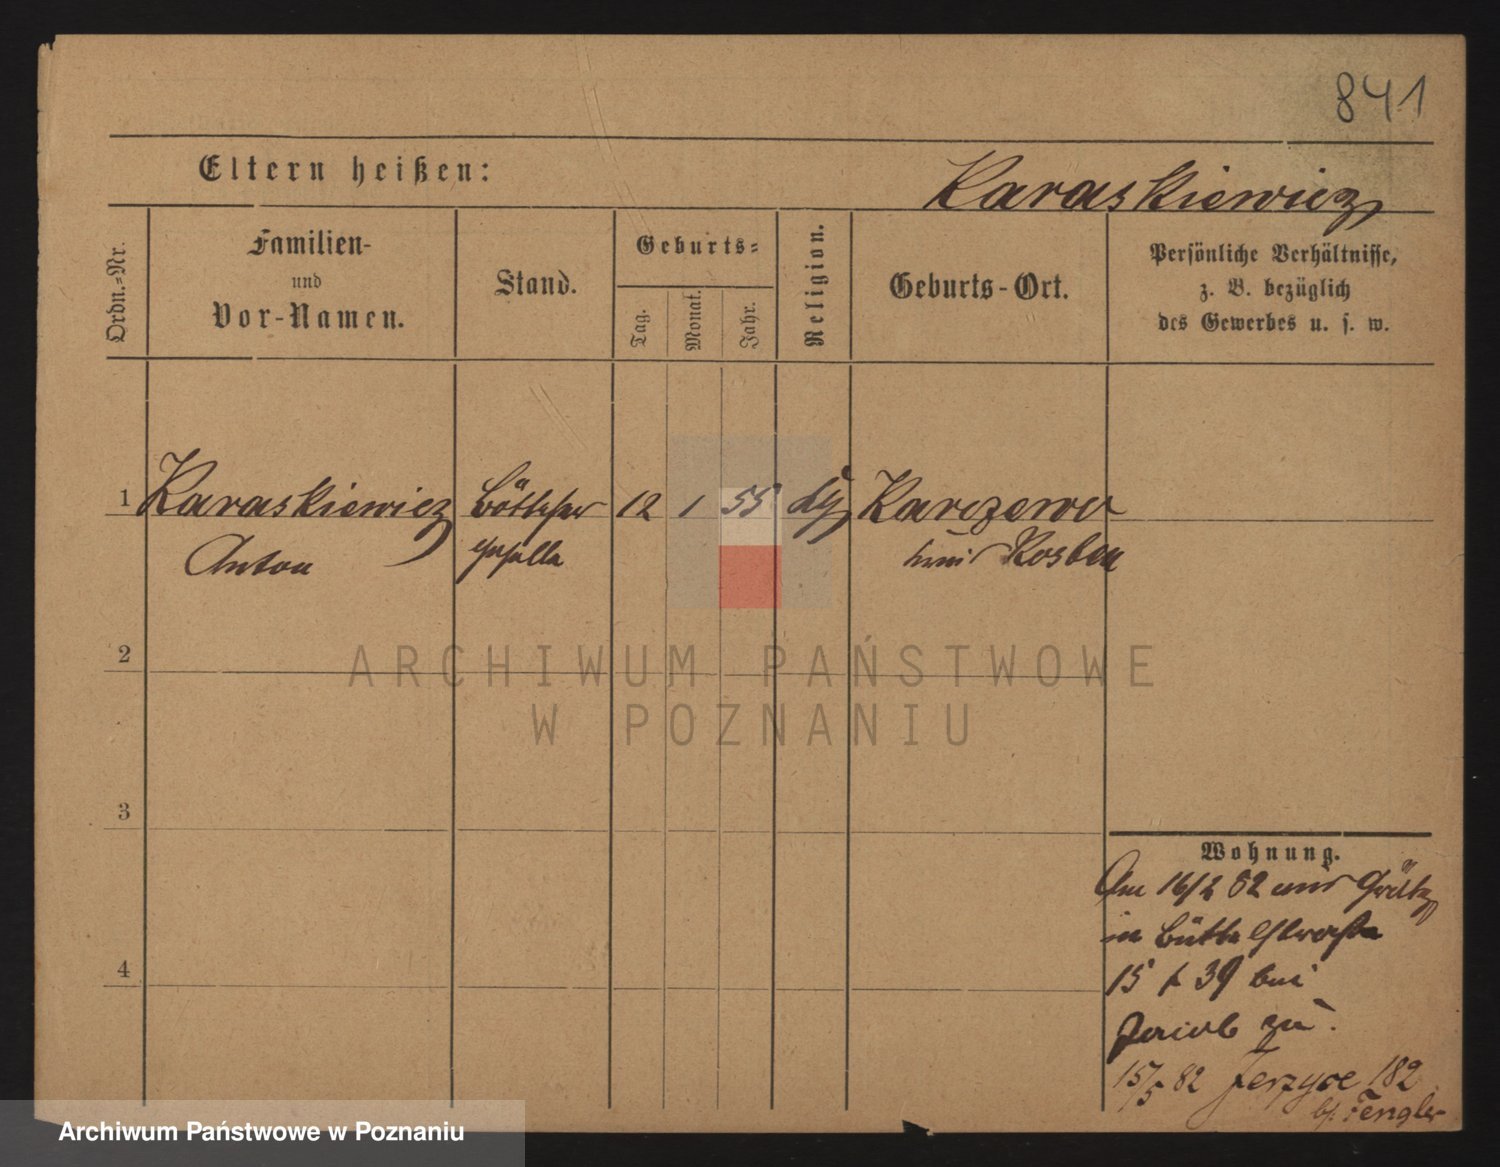 841
Eltern heißen:
Karaskiewicz
Ordn.-Nr.
Familien-
und
Vor-Namen.
Stand.
Geburts-
Tag.
Monat.
Jahr.
Religion.
Geburts-Ort.
Persönliche Verhältnisse,
z. B. bezüglich
des Gewerbes u. s. w.
1 Karaskiewicz Böttcher 12 1 55 Karczewo
Anton geselle Kosten
2
3
4
Wohnung.
Am 16/2 82 aus Grätz
in Büttelstraße
15 39 bei
Jacob zu.
15/5 82 Jerzyce 182
b/. Fengler
ARCHIWUM PAŃSTWOWE
W POZNANIU
Archiwum Państwowe w Poznaniu